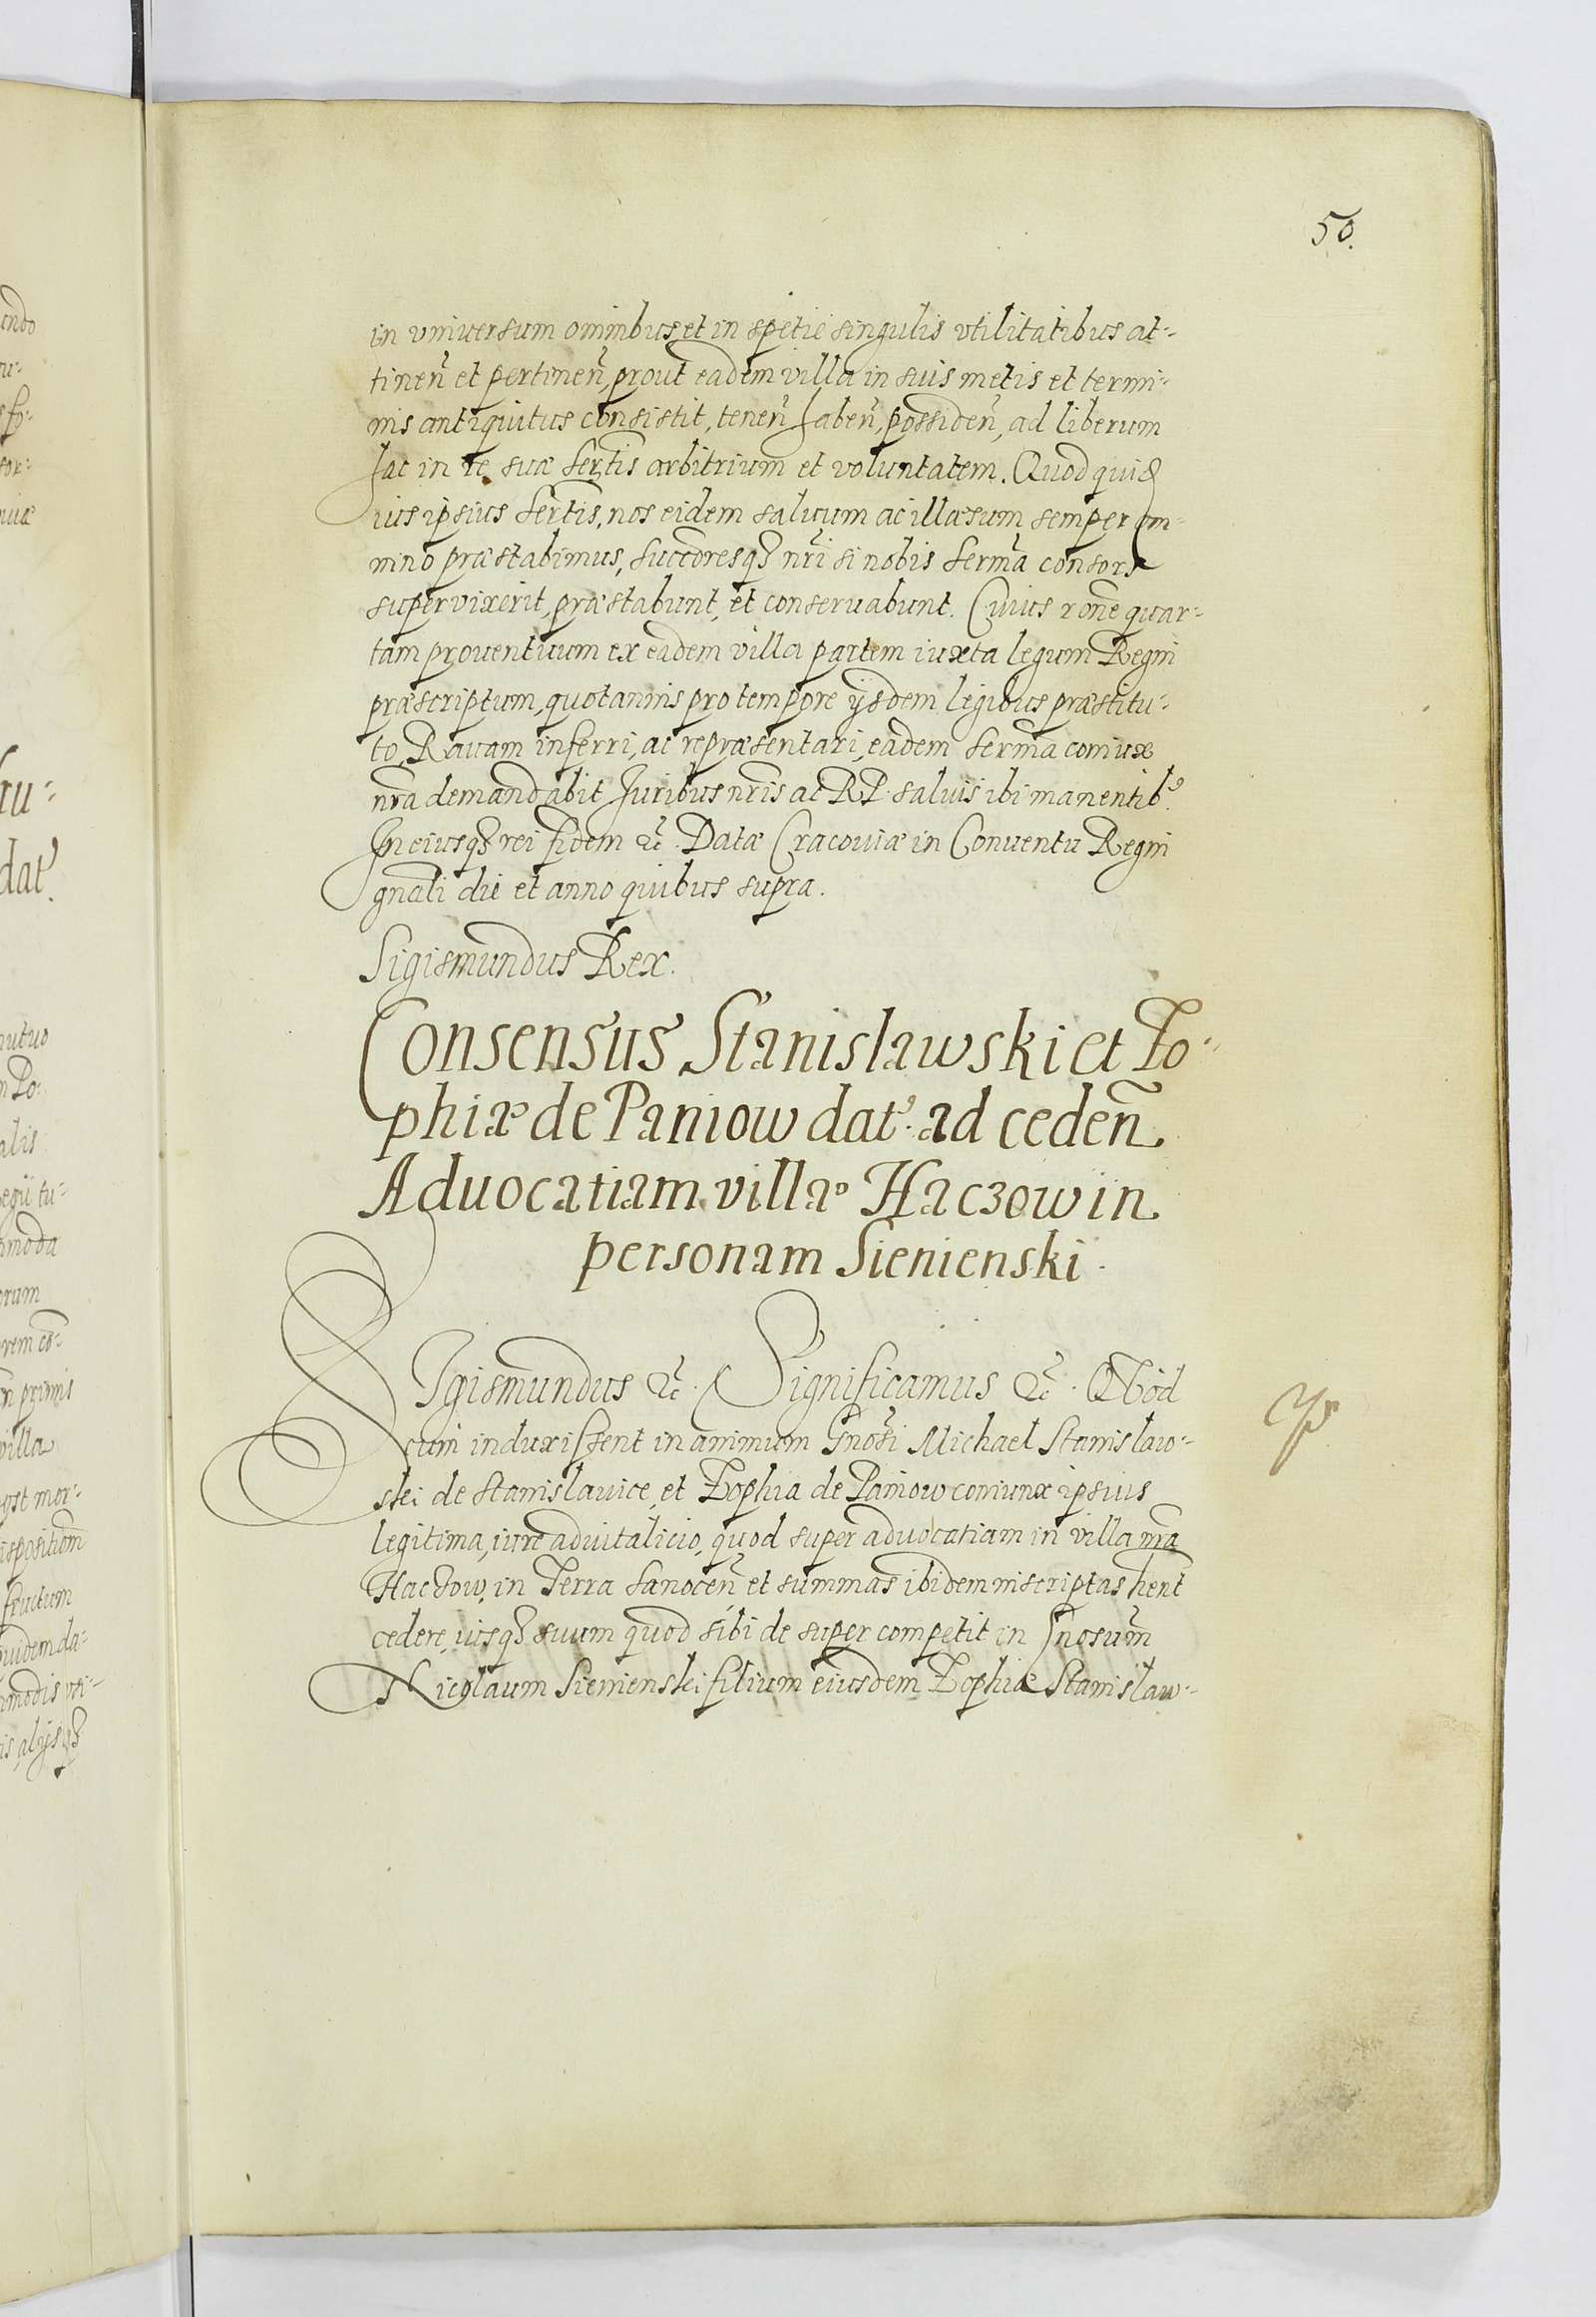 50.
in vniuersum omnibus et in spetie singulis vtilitatibus at-
tineñ et pertineñ, prout eadem villa in suis metis et termi-
nis antiquitus consistit, teneñ habeñ, possideñ, ad liberum
hac in re suæ Sertis arbitrium et voluntatem. Quod quid
ius ipsius Sertis, nos eidem saluum ac illæsum semper om-
nino præstabimus, succoresqȝ nr̃i si nobis Serma consors
supervixerit, præstabunt, et conseruabunt. Cuius rone quar-
tam prouentuum ex eadem villa partem iuxta legum Regni
præscriptum, quotannis pro tempore ijsdem legibus præstitu-
to, Rauam inferri, ac repræsentari, eadem Serma coniux
nr̃a demandabit Juribus nr̃is ac RP. saluis ibi manentibꝰ.
In eiusqȝ rei fidem &c. Datæ Cracouiæ in Conuentu Regni
gnali die et anno quibus supra.
Sigismundus Rex.
Consensus Stanislawski et Zo-
phiæ de Paniow dat. ad cedeñ
Aduocatiam villæ Haczow in
personam Sienienski.
SIgismundus &c. Significamus &c. Quod
cum induxissent in animum Gnosi Michael Stanislaw-
ski de Stanislauice, et Zophia de Paniow coniunx ipsius
legitima, iure aduitalicio, quod super aduocatiam in villa nr̃a
Haczow, in Terra Sanoceñ et summas ibidem inscriptas hent
cedere, iusqȝ suum quod sibi de super competit in Gnosum
Nicolaum Sienienski filium eiusdem Zophiæ Stanislaw-